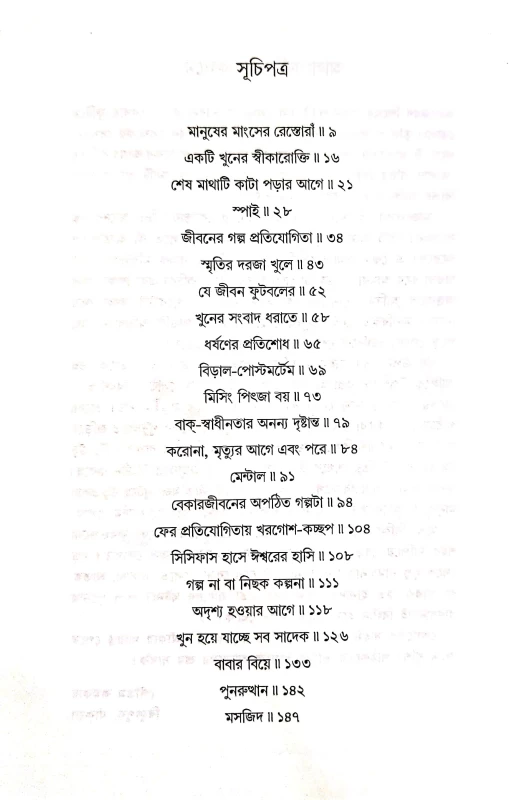 সূচিপত্র
মানুষের মাংসের রেস্তোরাঁ ॥ ৯
একটি খুনের স্বীকারোক্তি ॥ ১৬
শেষ মাথাটি কাটা পড়ার আগে ॥ ২১
স্পাই ॥ ২৮
জীবনের গল্প প্রতিযোগিতা ॥ ৩৪
স্মৃতির দরজা খুলে ॥ ৪৩
যে জীবন ফুটবলের ॥ ৫২
খুনের সংবাদ ধরাতে ॥ ৫৮
ধর্ষণের প্রতিশোধ ॥ ৬৫
বিড়াল-পোস্টমর্টেম ॥ ৬৯
মিসিং পিৎজা বয় ॥ ৭৩
বাক্-স্বাধীনতার অনন্য দৃষ্টান্ত ॥ ৭৯
করোনা, মৃত্যুর আগে এবং পরে ॥ ৮৪
মেন্টাল ॥ ৯১
বেকারজীবনের অপঠিত গল্পটা ॥ ৯৪
ফের প্রতিযোগিতায় খরগোশ-কচ্ছপ ॥ ১০৪
সিসিফাস হাসে ঈশ্বরের হাসি ॥ ১০৮
গল্প না বা নিছক কল্পনা ॥ ১১১
অদৃশ্য হওয়ার আগে ॥ ১১৮
খুন হয়ে যাচ্ছে সব সাদেক ॥ ১২৬
বাবার বিয়ে ॥ ১৩৩
পুনরুত্থান ॥ ১৪২
মসজিদ ॥ ১৪৭